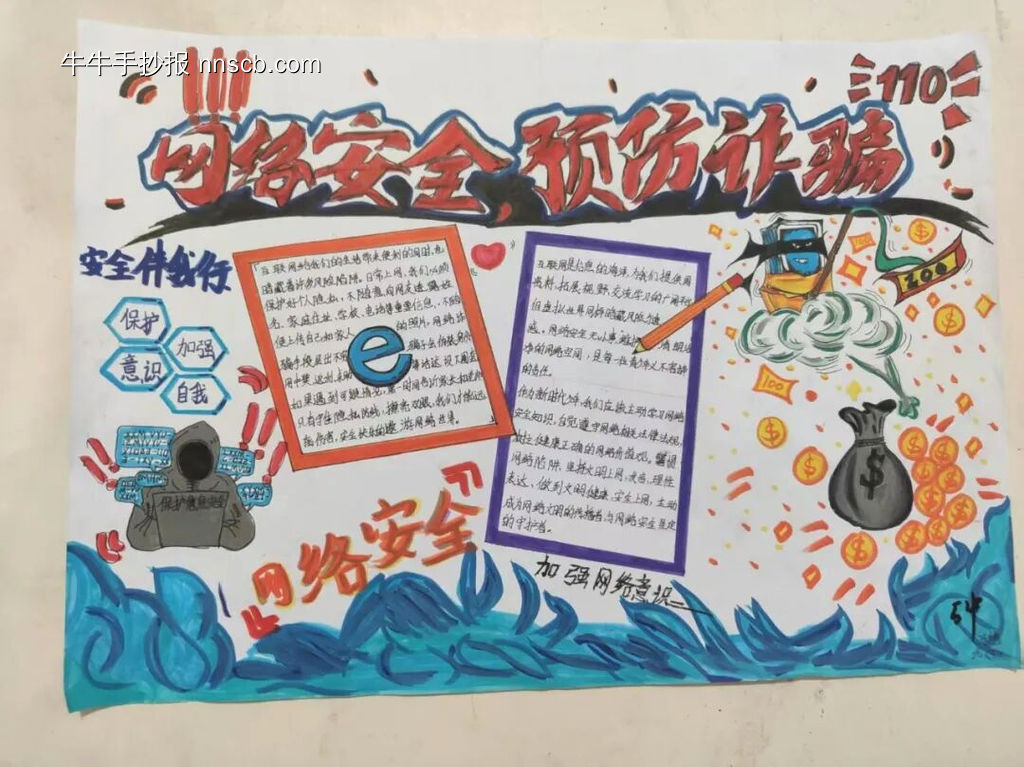 牛牛手抄报 nnscb.com
110
网络安全,预防诈骗
安全伴我行
保护
加强
意识
自我
保护信息安全
互联网给我们的生活带来便利的同时,也
暗藏着许多风险陷阱。日常上网,我们必须
保护好个人隐私,不随意向网友透露姓
名、家庭住址、学校、电话等重要信息,不随
便上传自己和家人的照片。网络诈
骗手段层出不
用中奖
如果遇到可疑情况,第一时间告诉家长和老师
只有守住隐私防线,擦亮双眼,我们才能远
离伤害,安全快乐的遨游网络世界。
互联网是信息的海洋,为我们提供用
资料、拓展视野、交流学习的广阔
但虚拟世界同样暗藏风险与
惑。网络安全无小事,
净的网络空间,是每一位青少年义不容辞
的责任。
作为新时代少年,我们应该主动学习网络
安全知识,自觉遵守网络相关法律法规,
树立健康正确的网络价值观,警惕
网络陷阱,坚持文明上网,友善、理性
表达,做到文明健康、安全上网,主动
成为网络文明的传播者与网络安全坚定
的守护者。
100
100
100
$
网络安全
加强网络意识